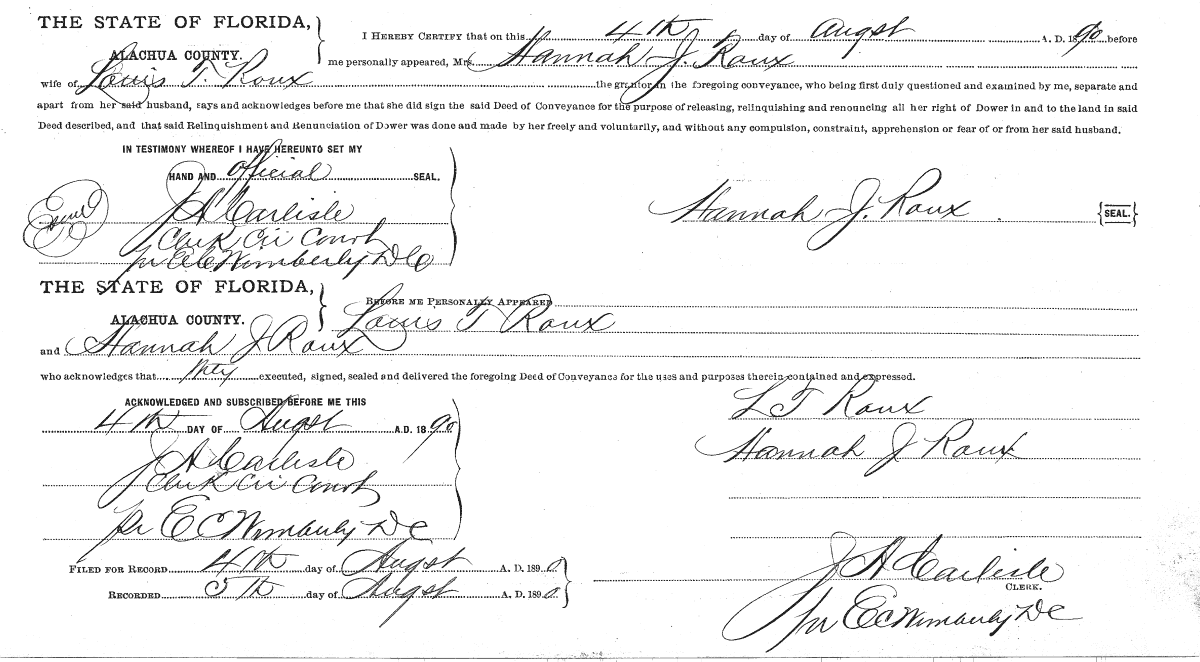 THE STATE OF FLORIDA,
ALACHUA COUNTY.
I HEREBY CERTIFY that on this 4th day of Augst A. D. 1890 before
me personally appeared, Mrs. Hannah J. Roux
wife of Louis T. Roux the grantor in the foregoing conveyance, who being first duly questioned and examined by me, separate and
apart from her said husband, says and acknowledges before me that she did sign the said Deed of Conveyance for the purpose of releasing, relinquishing and renouncing all her right of Dower in and to the land in said
Deed described, and that said Relinquishment and Renunciation of Dower was done and made by her freely and voluntarily, and without any compulsion, constraint, apprehension or fear of or from her said husband.
IN TESTIMONY WHEREOF I HAVE HEREUNTO SET MY
HAND AND official SEAL.
J A Carlisle
Clerk Cir Court
pr E C Wimberly D C
Hannah J. Roux
SEAL.
THE STATE OF FLORIDA,
ALACHUA COUNTY.
BEFORE ME PERSONALLY APPEARED
Louis T Roux
and Hannah J Roux
who acknowledges that they executed, signed, sealed and delivered the foregoing Deed of Conveyance for the uses and purposes therein contained and expressed.
ACKNOWLEDGED AND SUBSCRIBED BEFORE ME THIS
4th DAY OF Augst A.D. 1890
J A Carlisle
Clerk Cir Court
pr E C Wimberly D C
L T Roux
Hannah J Roux
FILED FOR RECORD 4th day of Augst A. D. 1890
RECORDED 5th day of Augst A. D. 1890
J A Carlisle
CLERK.
pr E C Wimberly D C